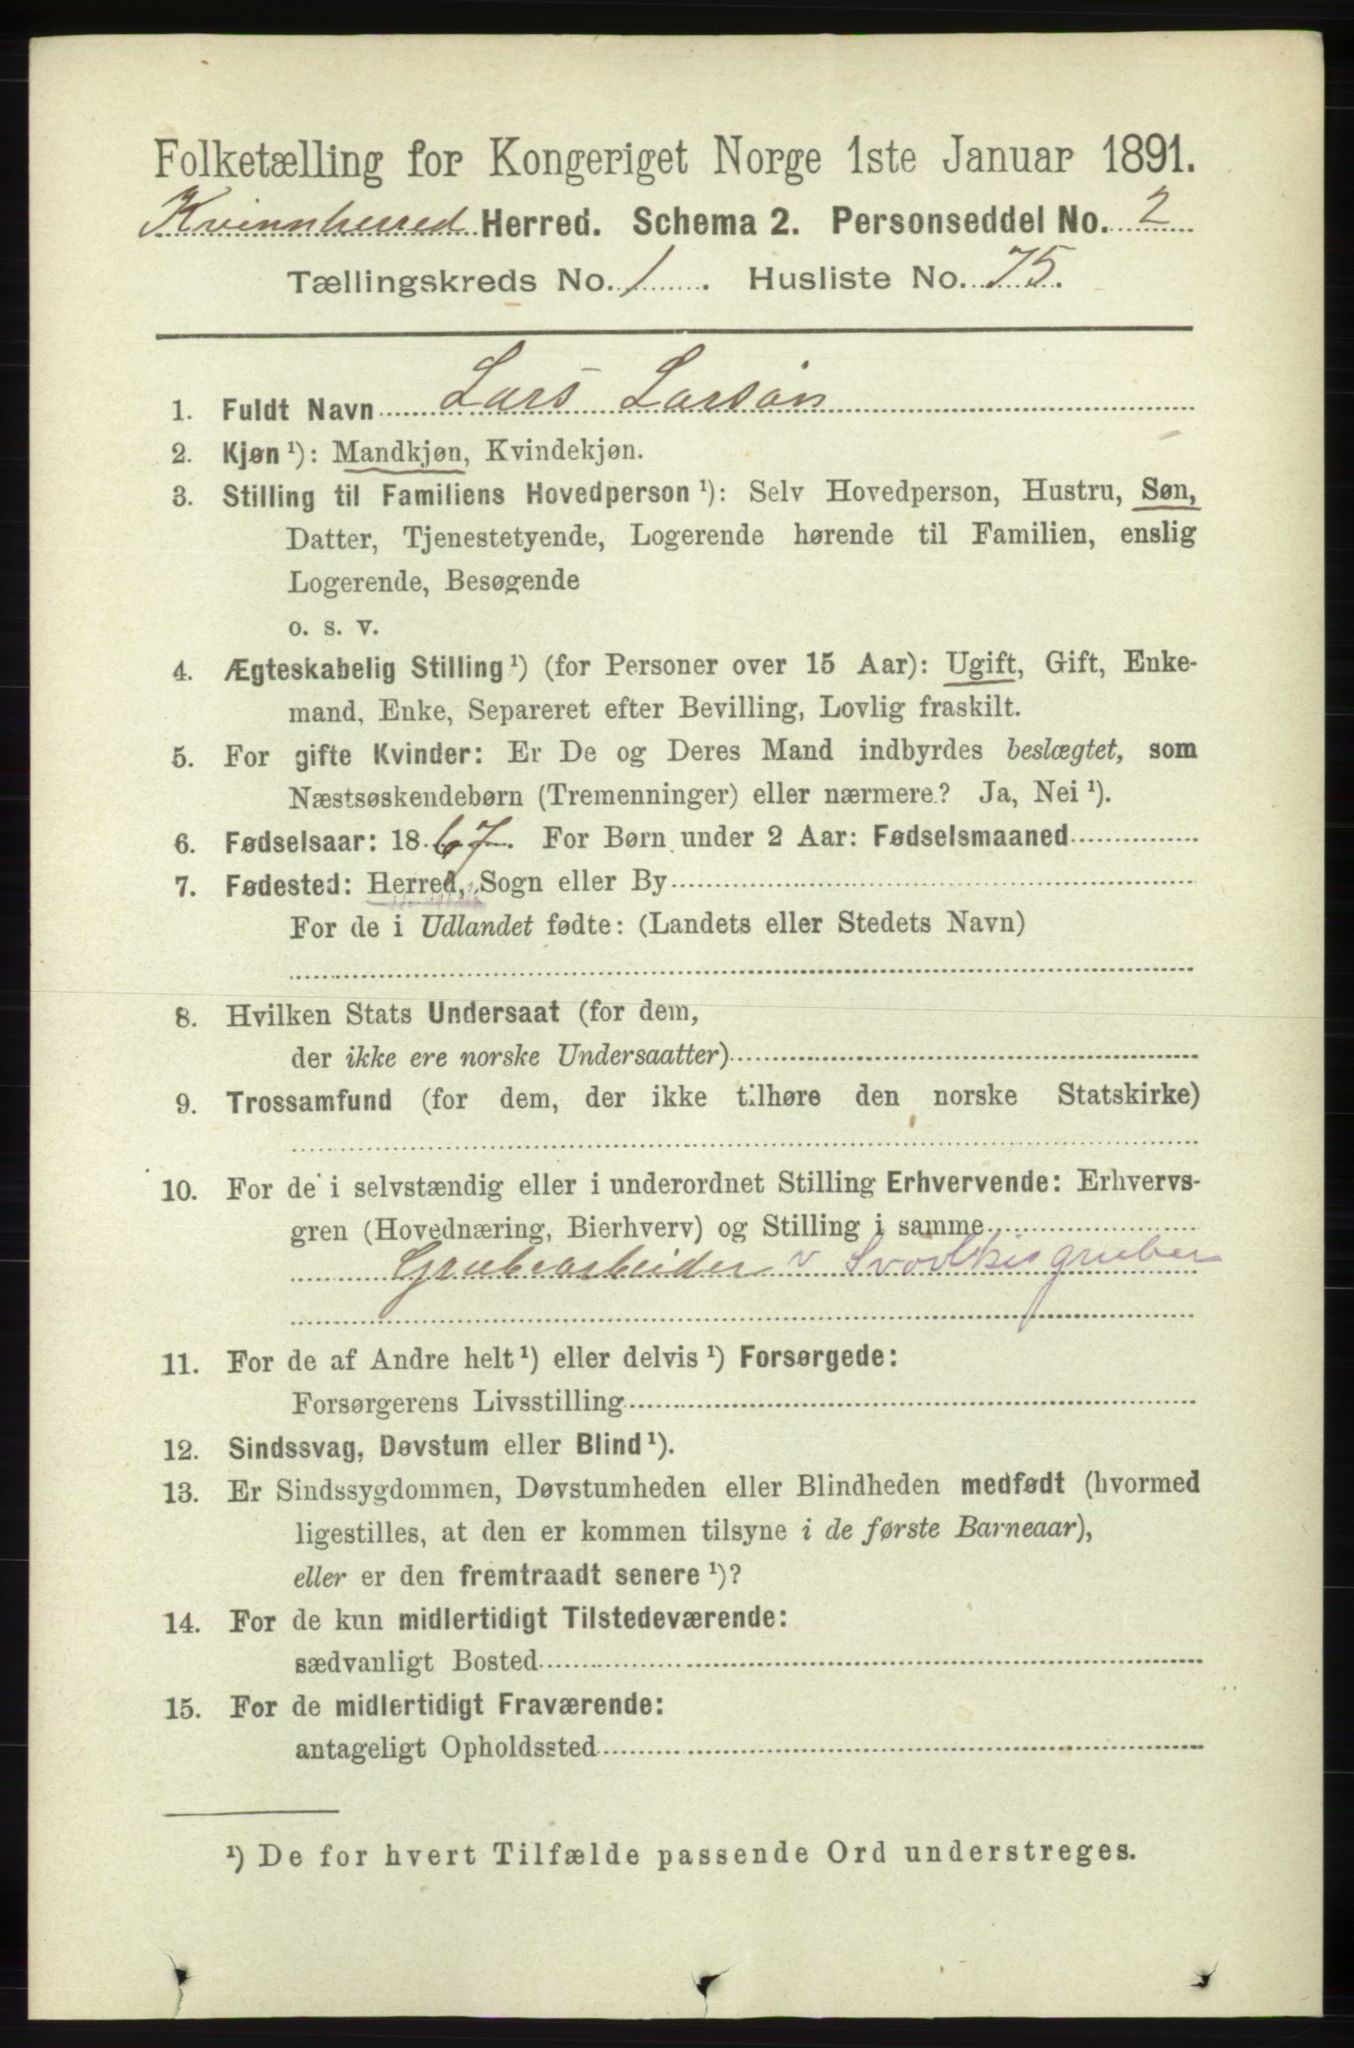 Folketælling for Kongeriget Norge 1ste Januar 1891.
Kvinnherred Herred. Schema 2. Personseddel No. 2
Tællingskreds No. 1. Husliste No. 75.
1. Fuldt Navn Lars Larsøn
2. Kjøn ¹): Mandkjøn, Kvindekjøn.
3. Stilling til Familiens Hovedperson ¹): Selv Hovedperson, Hustru, Søn,
Datter, Tjenestetyende, Logerende hørende til Familien, enslig
Logerende, Besøgende
o. s. v.
4. Ægteskabelig Stilling ¹) (for Personer over 15 Aar): Ugift, Gift, Enke-
mand, Enke, Separeret efter Bevilling, Lovlig fraskilt.
5. For gifte Kvinder: Er De og Deres Mand indbyrdes beslægtet, som
Næstsøskendebørn (Tremenninger) eller nærmere? Ja, Nei ¹).
6. Fødselsaar: 1867. For Børn under 2 Aar: Fødselsmaaned
7. Fødested: Herred, Sogn eller By
For de i Udlandet fødte: (Landets eller Stedets Navn)
8. Hvilken Stats Undersaat (for dem,
der ikke ere norske Undersaatter)
9. Trossamfund (for dem, der ikke tilhøre den norske Statskirke)
10. For de i selvstændig eller i underordnet Stilling Erhvervende: Erhvervs-
gren (Hovednæring, Bierhverv) og Stilling i samme
Grubearbeider v Svovlkisgruber
11. For de af Andre helt ¹) eller delvis ¹) Forsørgede:
Forsørgerens Livsstilling
12. Sindssvag, Døvstum eller Blind ¹).
13. Er Sindssygdommen, Døvstumheden eller Blindheden medfødt (hvormed
ligestilles, at den er kommen tilsyne i de første Barneaar),
eller er den fremtraadt senere ¹)?
14. For de kun midlertidigt Tilstedeværende:
sædvanligt Bosted
15. For de midlertidigt Fraværende:
antageligt Opholdssted
¹) De for hvert Tilfælde passende Ord understreges.